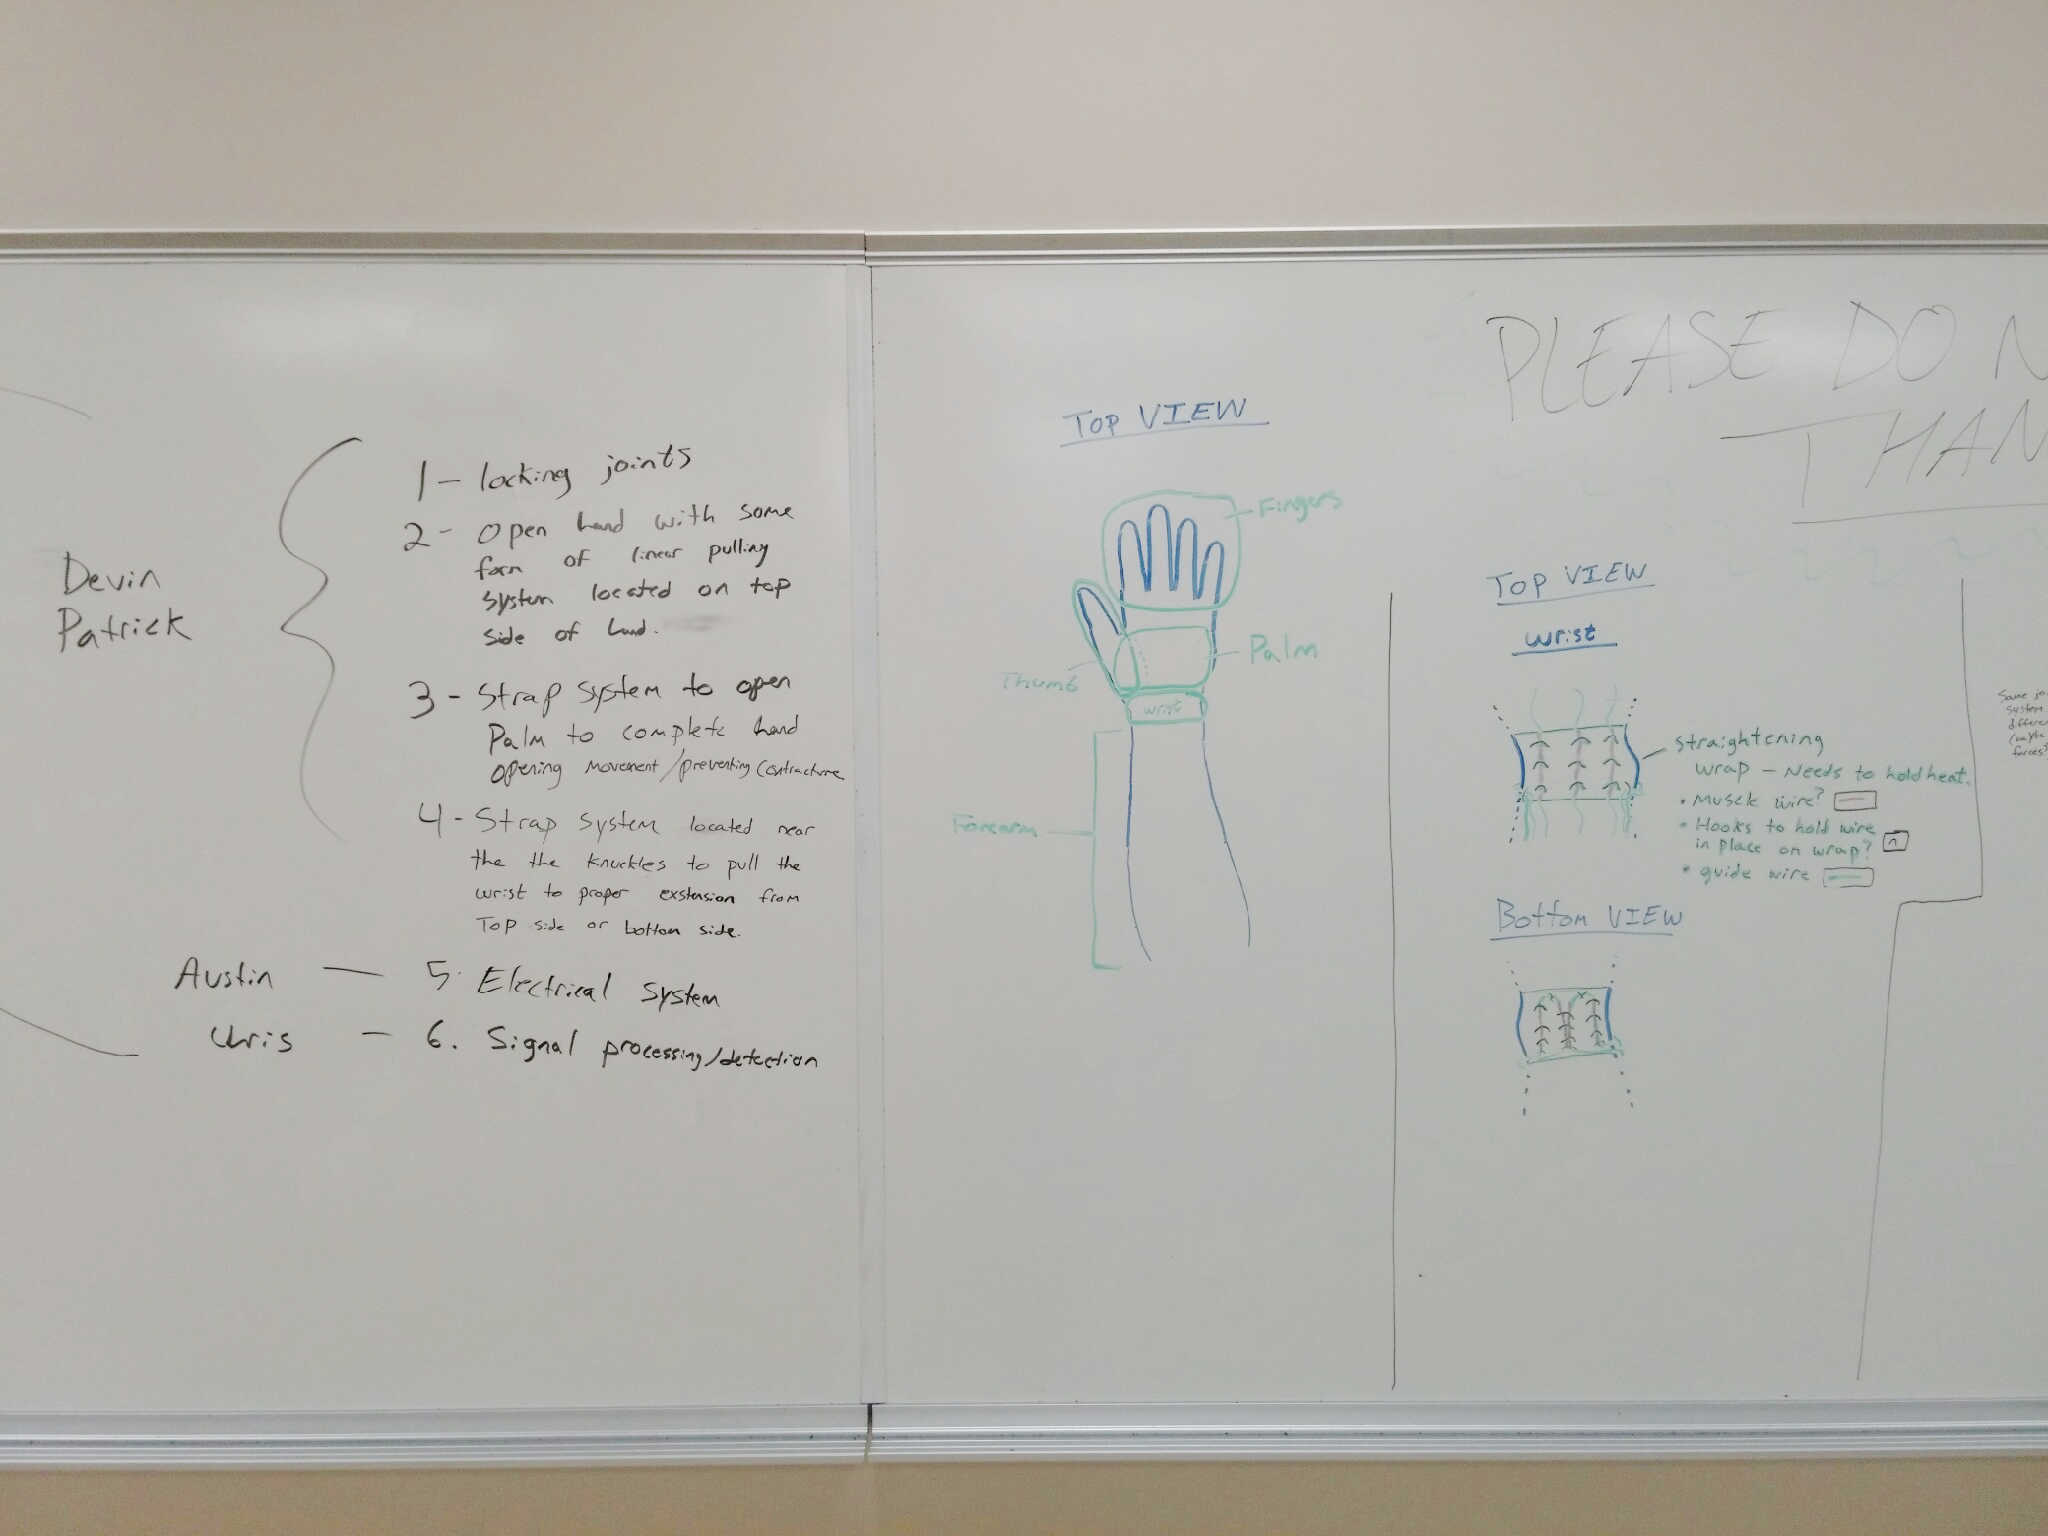 Devin
Patrick
1 - locking joints
2 - Open hand with some
form of linear pulling
system located on top
side of hand.
3 - Strap system to open
Palm to complete hand
opening movement/preventing contracture
4 - Strap system located near
the the knuckles to pull the
wrist to proper exstension from
Top side or bottom side.
Austin — 5. Electrical system
Chris — 6. Signal processing/detection
TOP VIEW
Fingers
Palm
Thumb
wrist
Forearm
PLEASE DO N
THAN
TOP VIEW
wrist
straightening
wrap - Needs to hold heat.
• Muscle wire?
• Hooks to hold wire
in place on wrap?
• guide wire
Bottom VIEW
Same jo
system
differe
forces?